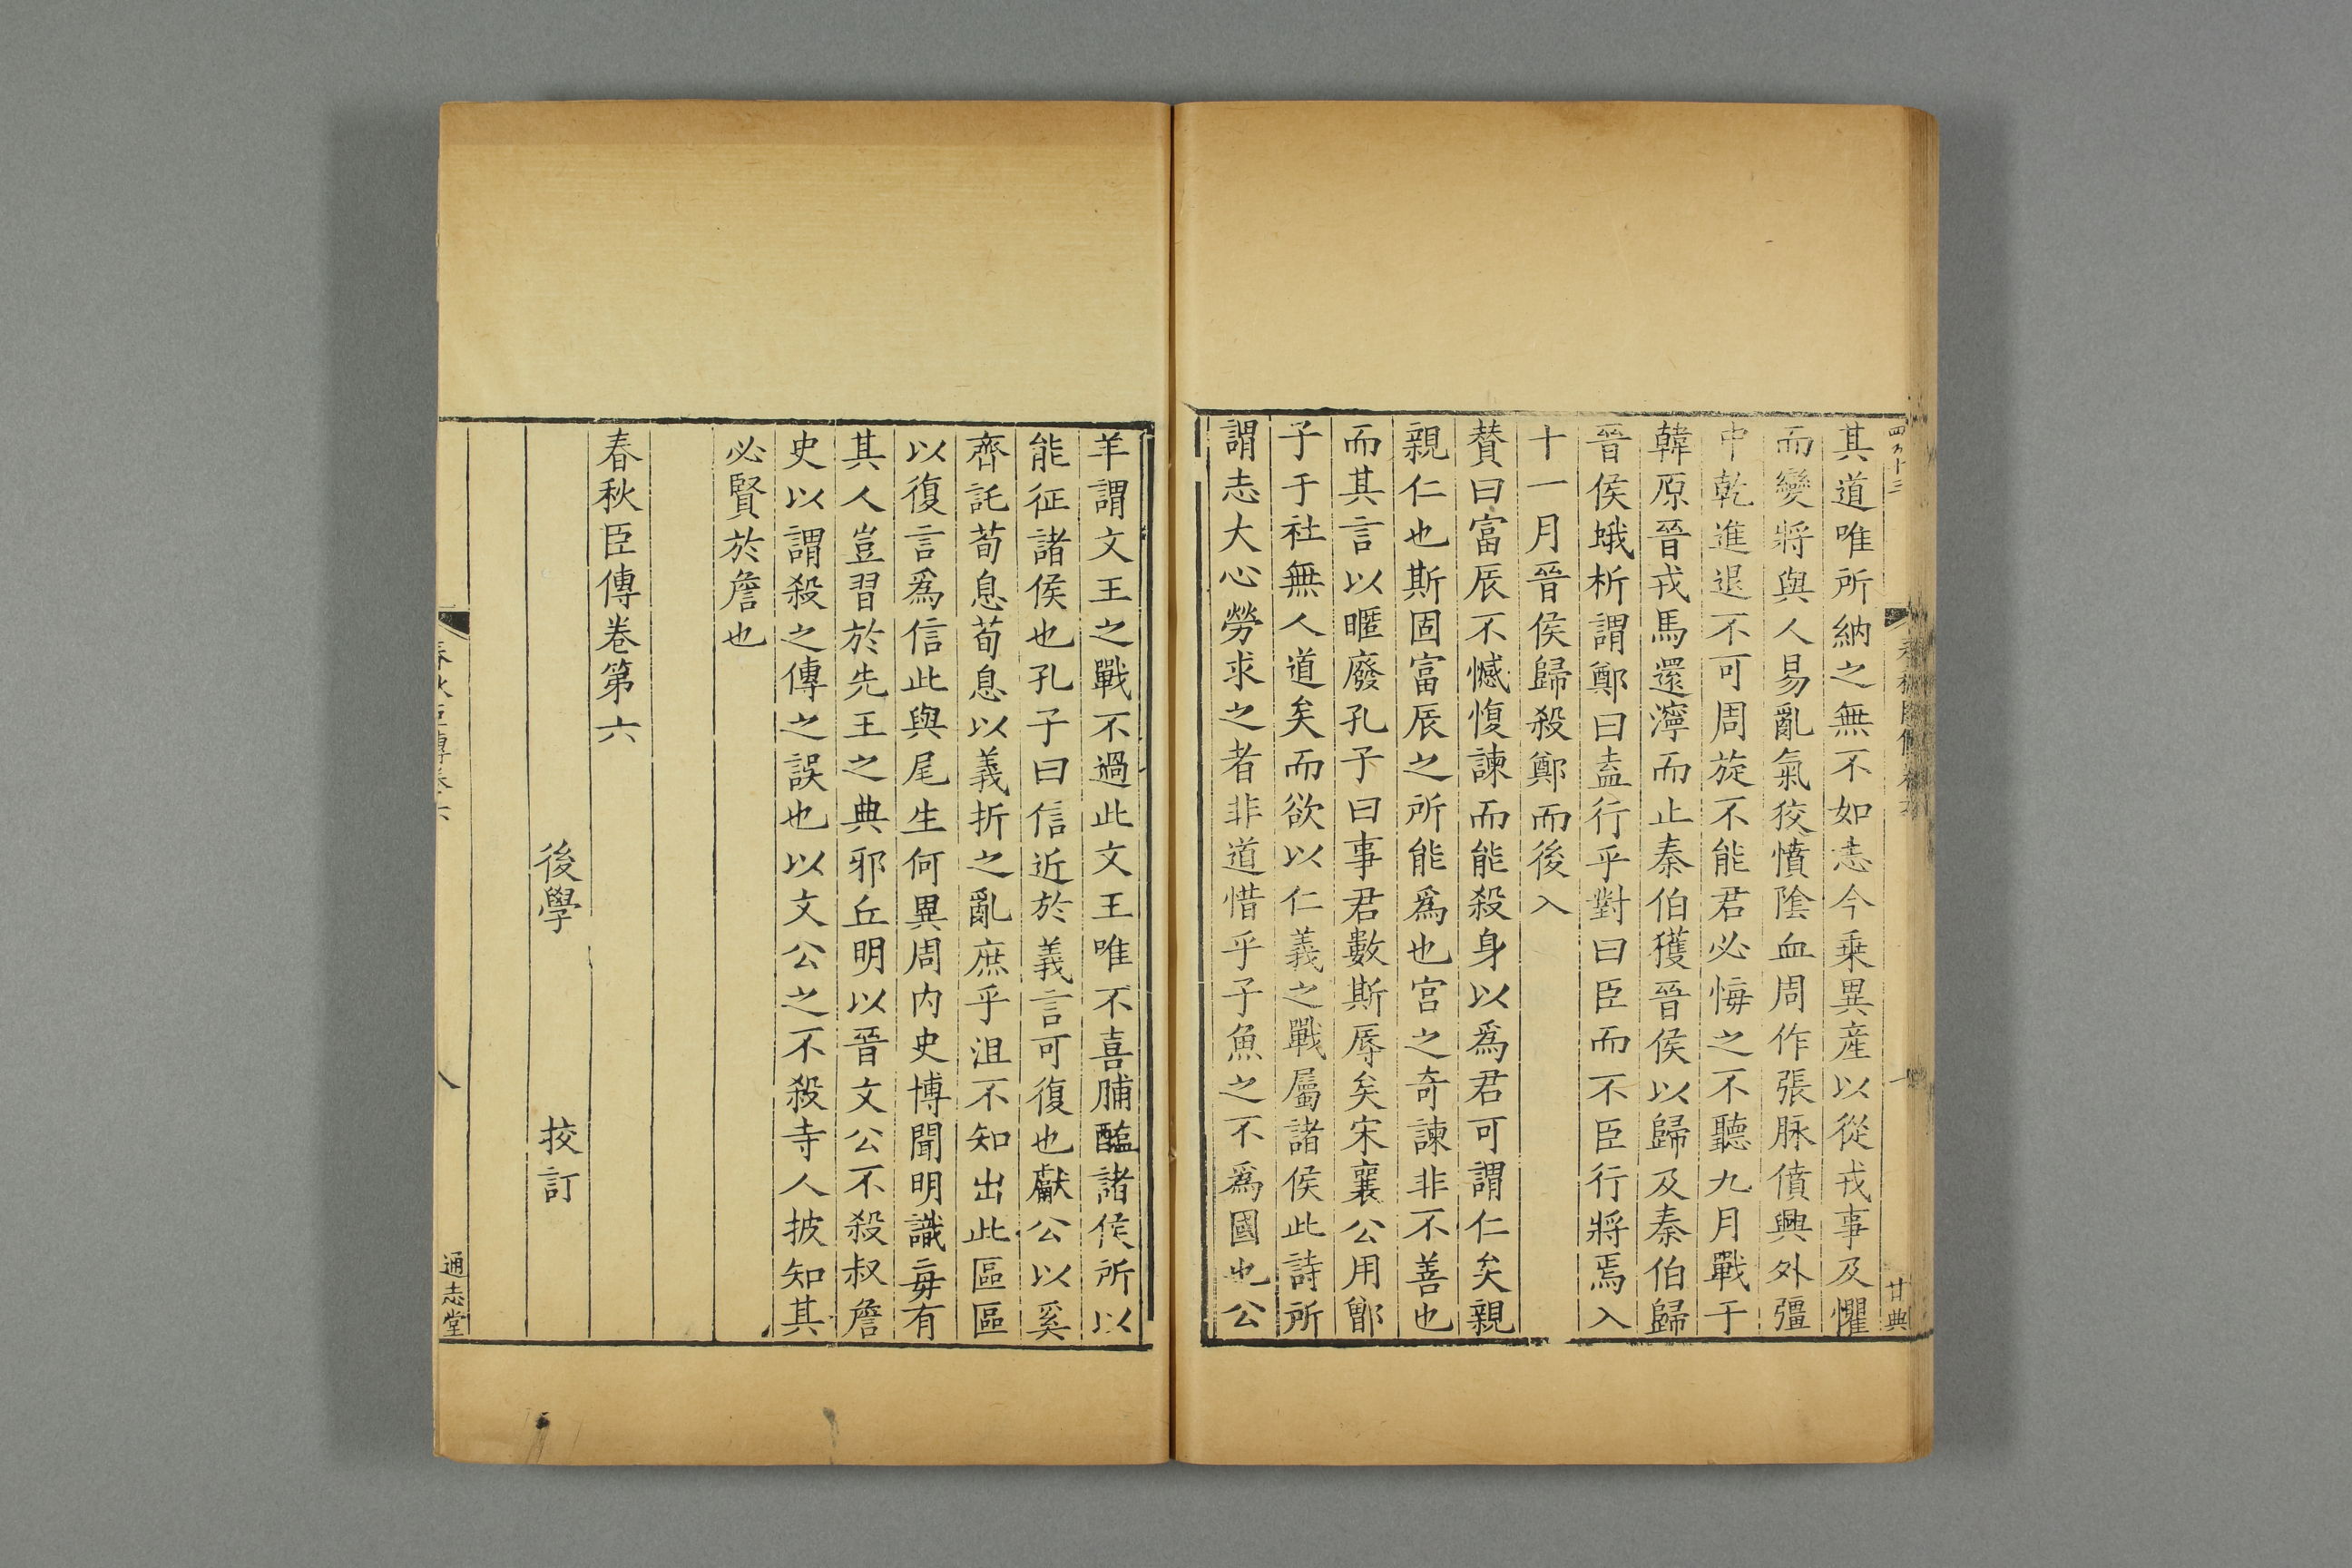 其道唯所納之無不如志今乗異産以從戎事及懼
而變將與人易亂氣狡憤陰血周作張脉僨興外彊
中乾進退不可周旋不能君必悔之不聽九月戰于
韓原晉戎馬還濘而止秦伯獲晉侯以歸及秦伯歸
晉侯蛾析謂鄭曰盍行乎對曰臣而不臣行將焉入
十一月晉侯歸殺鄭而後入
賛曰富辰不憾愎諫而能殺身以爲君可謂仁矣親
親仁也斯固富辰之所能爲也宫之奇諫非不善也
而其言以暱廢孔子曰事君數斯辱矣宋襄公用鄫
子于社無人道矣而欲以仁義之戰屬諸侯此詩所
謂志大心勞求之者非道惜乎子魚之不爲國也公
羊謂文王之戰不過此文王唯不喜脯醢諸侯所以
能征諸侯也孔子曰信近於義言可復也獻公以奚
齊託荀息荀息以義折之亂庶乎沮不知出此區區
以復言爲信此與尾生何異周内史博聞明識毎有
其人豈習於先王之典邪丘明以晉文公不殺叔詹
史以謂殺之傳之誤也以文公之不殺寺人披知其
必賢於詹也
春秋臣傳卷第六
後學 挍訂
春秋臣傳卷六
八
通志堂
甘典